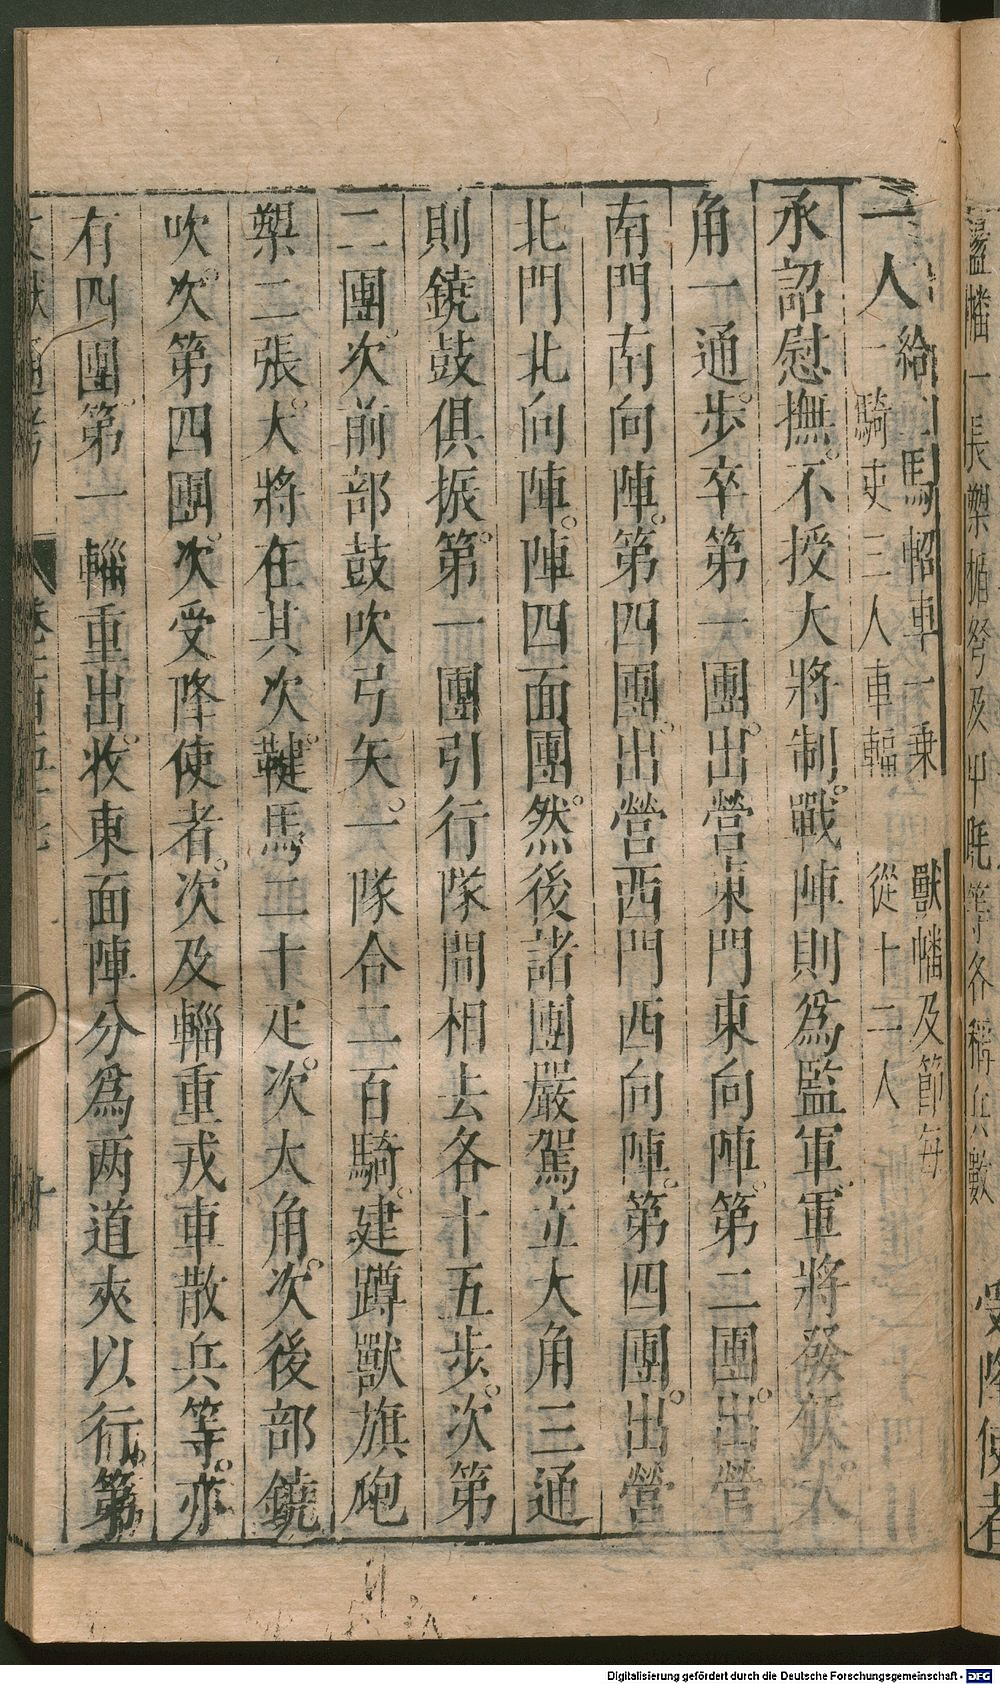 一人給二馬軺車一乗獸幡及節每
一騎吏三人車輻從十二人
承詔慰撫不授大將制戰陣則爲監軍軍將發候大
角一通步卒第一團出營東門東向陣第二團出營
南門南向陣第四團出營西門西向陣第四團出營
北門北向陣陣四面團然後諸團嚴駕立大角三通
則鐃鼓俱振第一團引行隊間相去各十五步次第
二團次前部鼓吹弓矢一隊合二百騎建蹲獸旗砲
槊二張大將在其次䩺馬二十疋次大角次後部鐃
吹次第四團次受降使者次及輜重戎車散兵等亦
有四團第一輜重出收東面陣分爲两道夾以行第
文獻通考 卷一百五十七
盪幡一張槊楯弩及甲毦等各稱兵數 受降使者
Digitalisierung gefördert durch die Deutsche Forschungsgemeinschaft - DFG